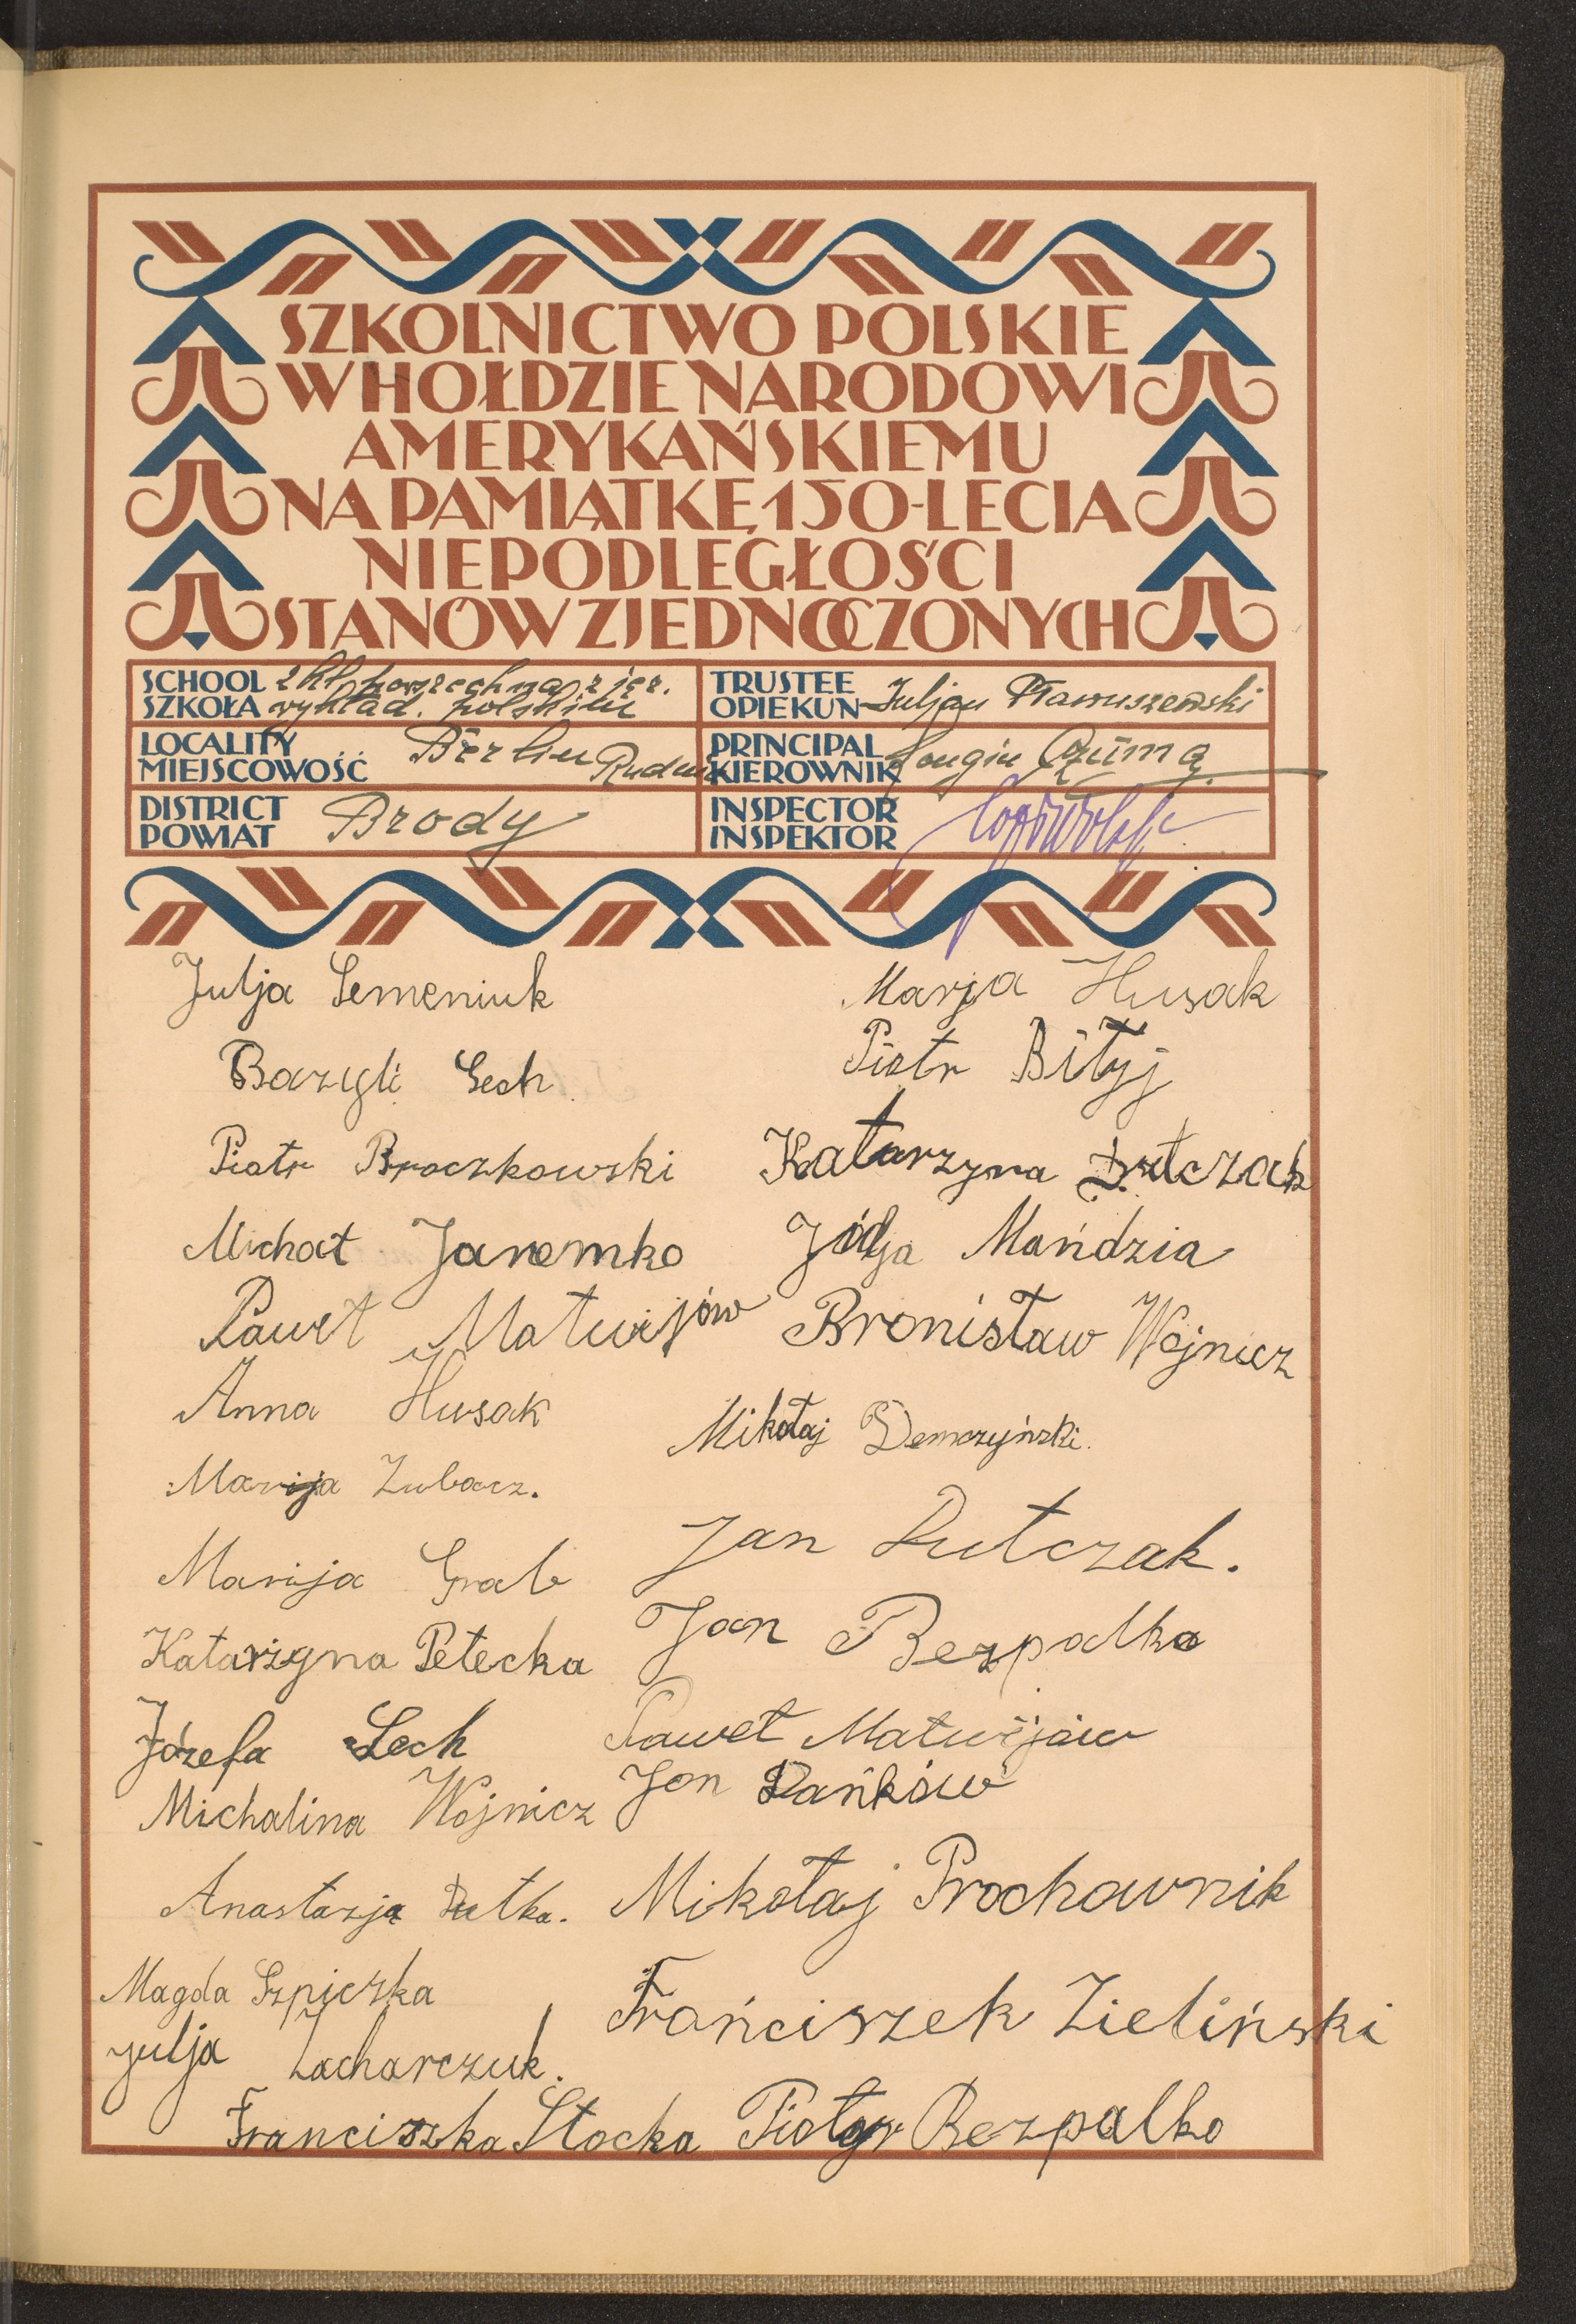 SZKOLNICTWO POLSKIE
W HOŁDZIE NARODOWI
AMERYKAŃSKIEMU
NA PAMIĄTKĘ 150-LECIA
NIEPODLEGŁOŚCI
STANÓW ZJEDNOCZONYCH
SCHOOL
SZKOŁA
2 kl. powszechna z jęz.
wykład. polskim
TRUSTEE
OPIEKUN
Juljan
LOCALITY
MIEJSCOWOŚĆ
Berlin
PRINCIPAL
KIEROWNIK
Longin
DISTRICT
POWIAT
Brody
INSPECTOR
INSPEKTOR
Julja Semeniuk
Bazyli Lech
Piotr Broczkowski
Michał Jaremko
Paweł Matwijów
Anna Husak
Marija Zubacz.
Marija Grab
Katarzyna Petecka
Józefa Lech
Michalina Wojnicz
Anastazja Dutka.
Magda Szpiczka
Julja Zacharczuk.
Franciszka Stocka
Marja Husak
Piotr Biłyj
Katarzyna Dutczak
Mańdzia
Bronisław Wojnicz
Mikołaj Demczyński.
Jan Dutczak.
Jan Bezpalko
Paweł Matwijów
Jan Dańków
Mikołaj Prochownik
Frańciszek Zieliński
Piotr Bezpalko